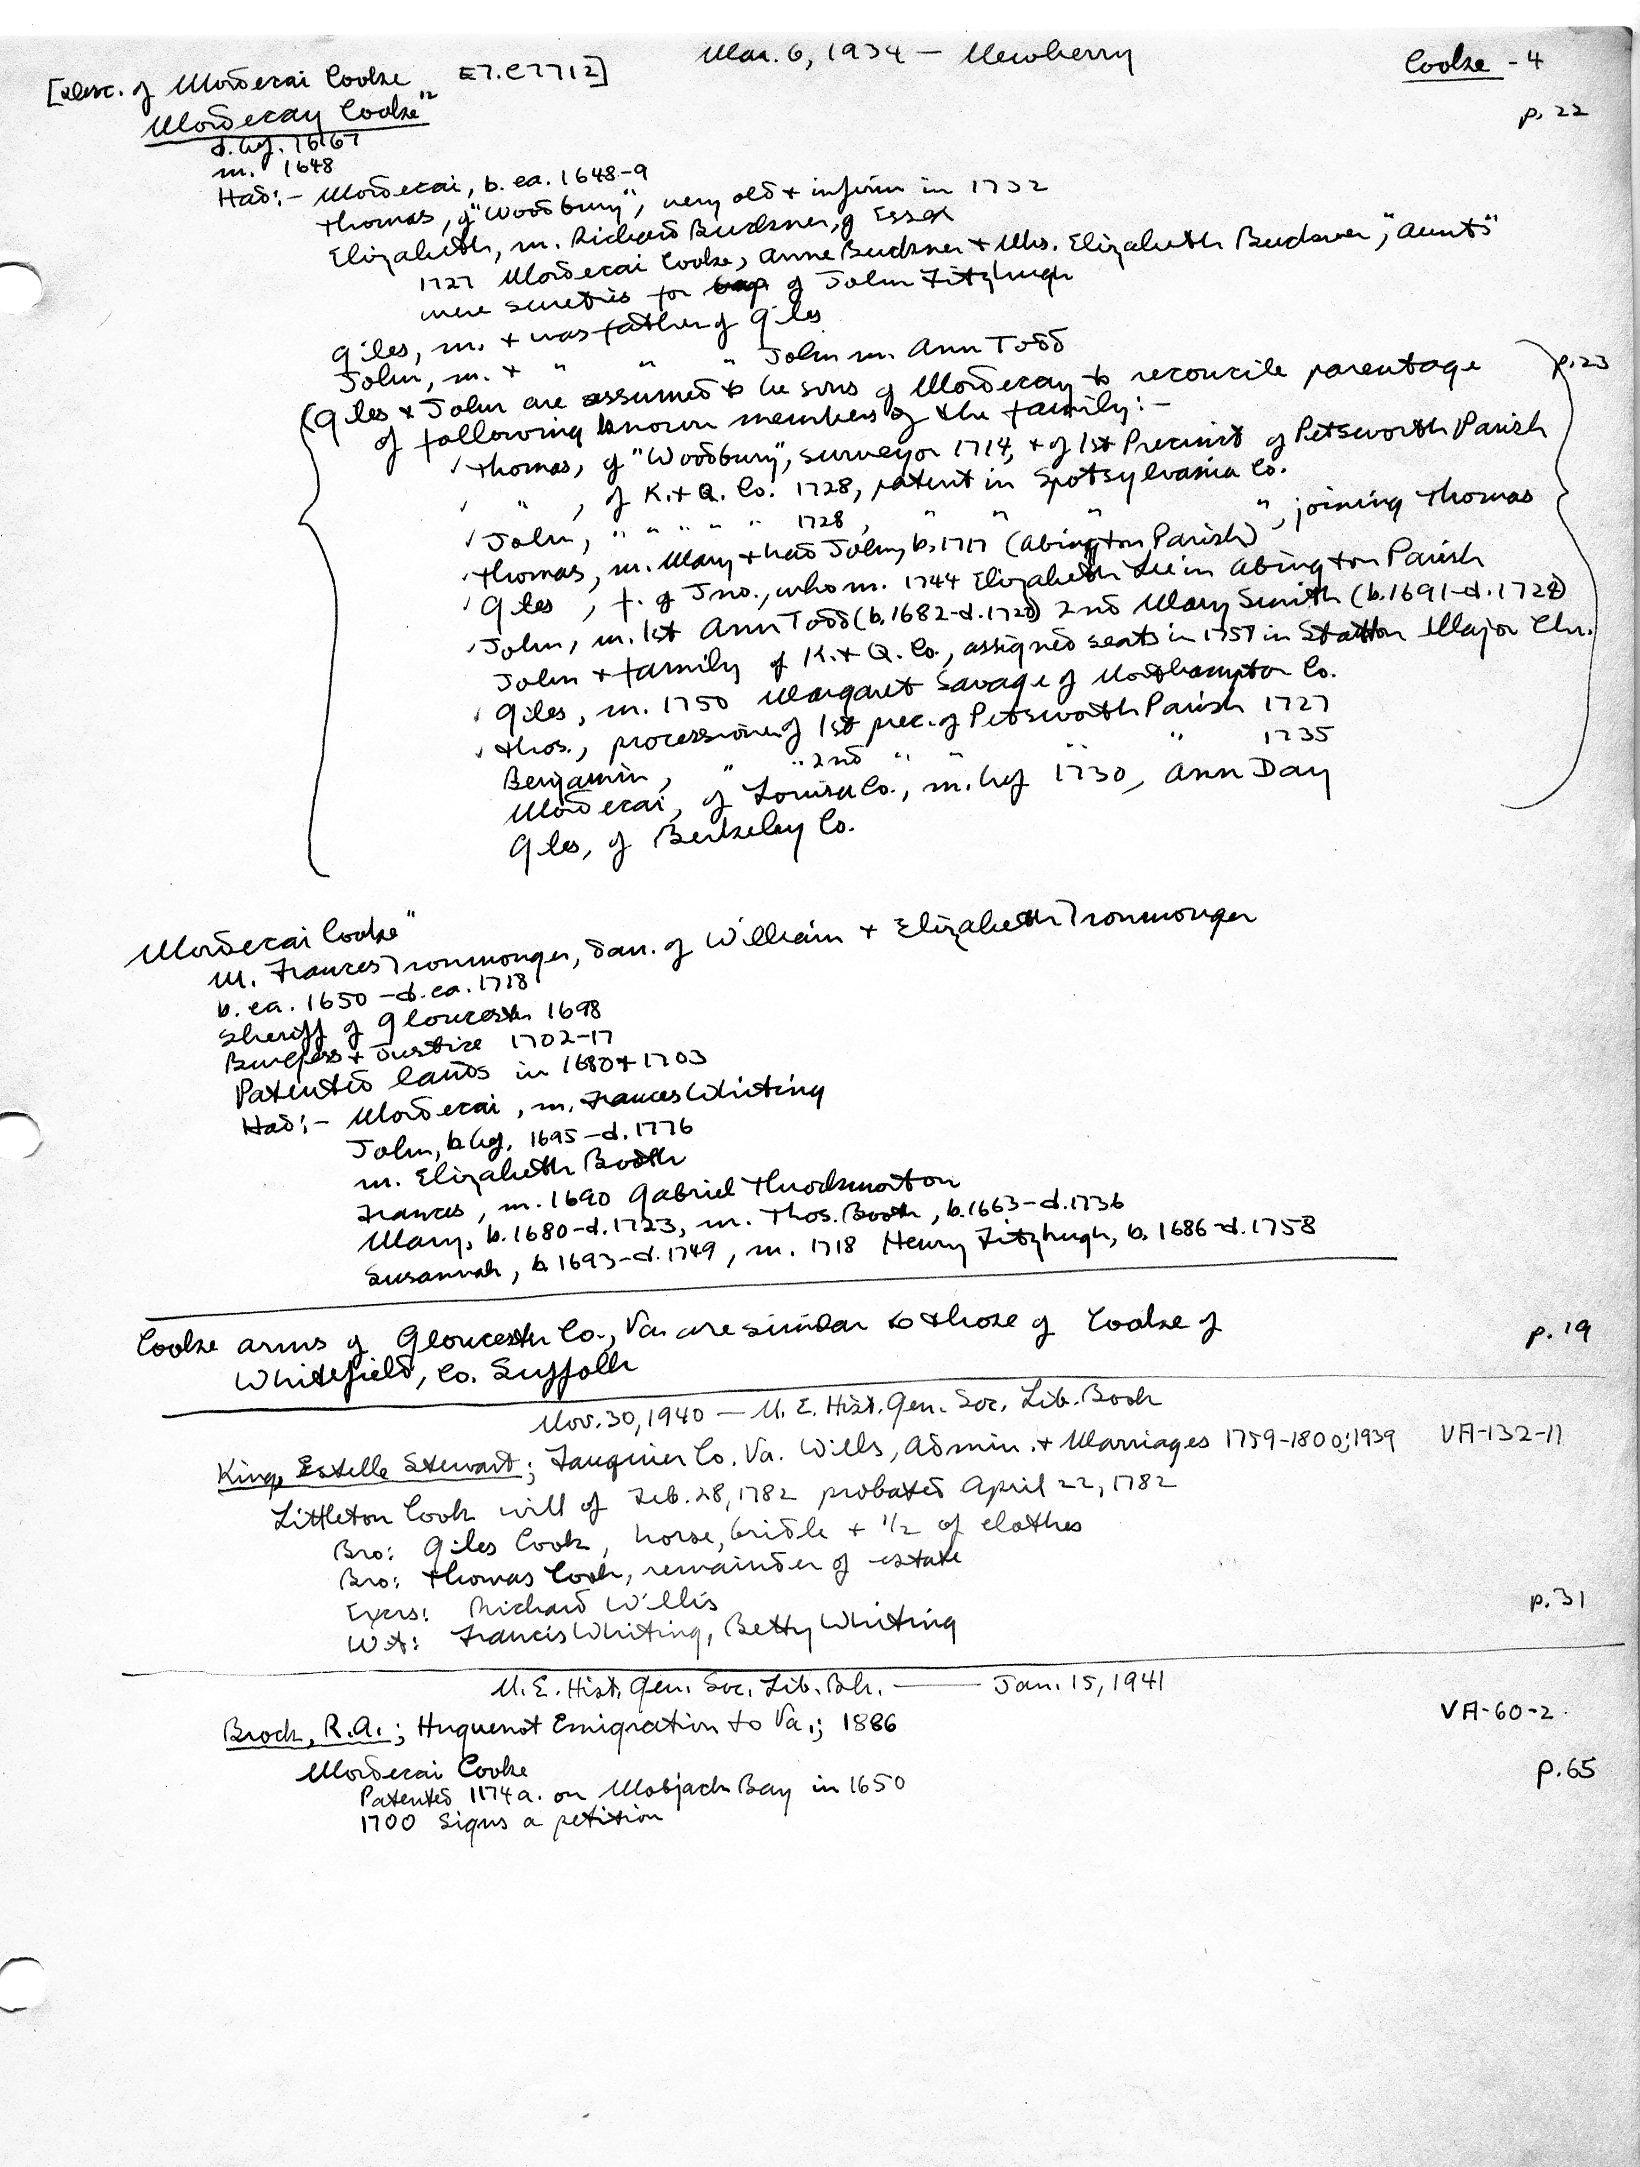 Mar. 6, 1934 — Newberry
Cooke - 4
[Desc. of Mordecai Cooke E7.C7712]
p. 22
Mordecay Cooke"
d. by. 1667
m. 1648
Had:- Mordecai, b. ca. 1648-9
Thomas, of "Woodbury", very old + infirm in 1732
Elizabeth, m. Richard Buckner, of Essex
1727 Mordecai Cooke, Anne Buckner + Mrs. Elizabeth Buckner, "aunts"
were sureties for of John Fitzhugh
Giles, m. + was father of Giles
John, m. + " " " John m. Ann Todd
(Giles + John are assumed to be sons of Mordecay to reconcile parentage p. 23
of following known members of the family:-
✓ Thomas, of "Woodbury", surveyor 1714, + of 1st Precinct of Petsworth Parish
✓ " , of K. + Q. Co. 1728, patent in Spotsylvania Co.
✓ John, " " " " " 1728, " " " ", joining Thomas
✓ Thomas, m. Mary + had John, b. 1717 (Abington Parish)
✓ Giles, f. of Jno., who m. 1744 Elizabeth Lee in Abington Parish
✓ John, m. 1st Ann Todd (b. 1682-d. 1720) 2nd Mary Smith (b. 1691-d. 1724)
John + family of K. + Q. Co., assigned seats in 1757 in Stratton Major Chr.
✓ Giles, m. 1750 Margaret Savage of Northampton Co.
✓ Thos., processioner of 1st prec. of Petsworth Parish 1727
Benjamin, " " 2nd " " " " 1735
Mordecai, of Louisa Co., m. by 1730, Ann Day
Giles, of Berkeley Co.
Mordecai Cooke"
m. Frances Ironmonger, dau. of William + Elizabeth Ironmonger
b. ca. 1650 - d. ca. 1718
Sheriff of Gloucester 1698
Burgess + Justice 1702-17
Patented lands in 1680 + 1703
Had:- Mordecai, m. Frances Whiting
John, b. by. 1695 - d. 1776
m. Elizabeth Booth
Frances, m. 1690 Gabriel Throckmorton
Mary, b. 1680-d. 1723, m. Thos. Booth, b. 1663-d. 1736
Susannah, b. 1693-d. 1749, m. 1718 Henry Fitzhugh, b. 1686-d. 1758
Cooke arms of Gloucester Co., Va. are similar to those of Cooke of p. 19
Whitefield, Co. Suffolk
Nov. 30, 1940 — N. E. Hist. Gen. Soc. Lib. Book
King, Estelle Stewart; Fauquier Co. Va. Wills, Admin. + Marriages 1759-1800; 1939 VA-132-11
Littleton Cook will of Feb. 28, 1782 probated April 22, 1782
Bro: Giles Cook, horse, bridle + 1/2 of clothes
Bro: Thomas Cook, remainder of estate
Exrs: Richard Willis p. 31
Wit: Francis Whiting, Betty Whiting
N. E. Hist. Gen. Soc. Lib. Bk. — Jan. 15, 1941
Brock, R.A.; Huguenot Emigration to Va.; 1886 VA-60-2
Mordecai Cooke p. 65
Patented 1174 a. on Mobjack Bay in 1650
1700 Signs a petition